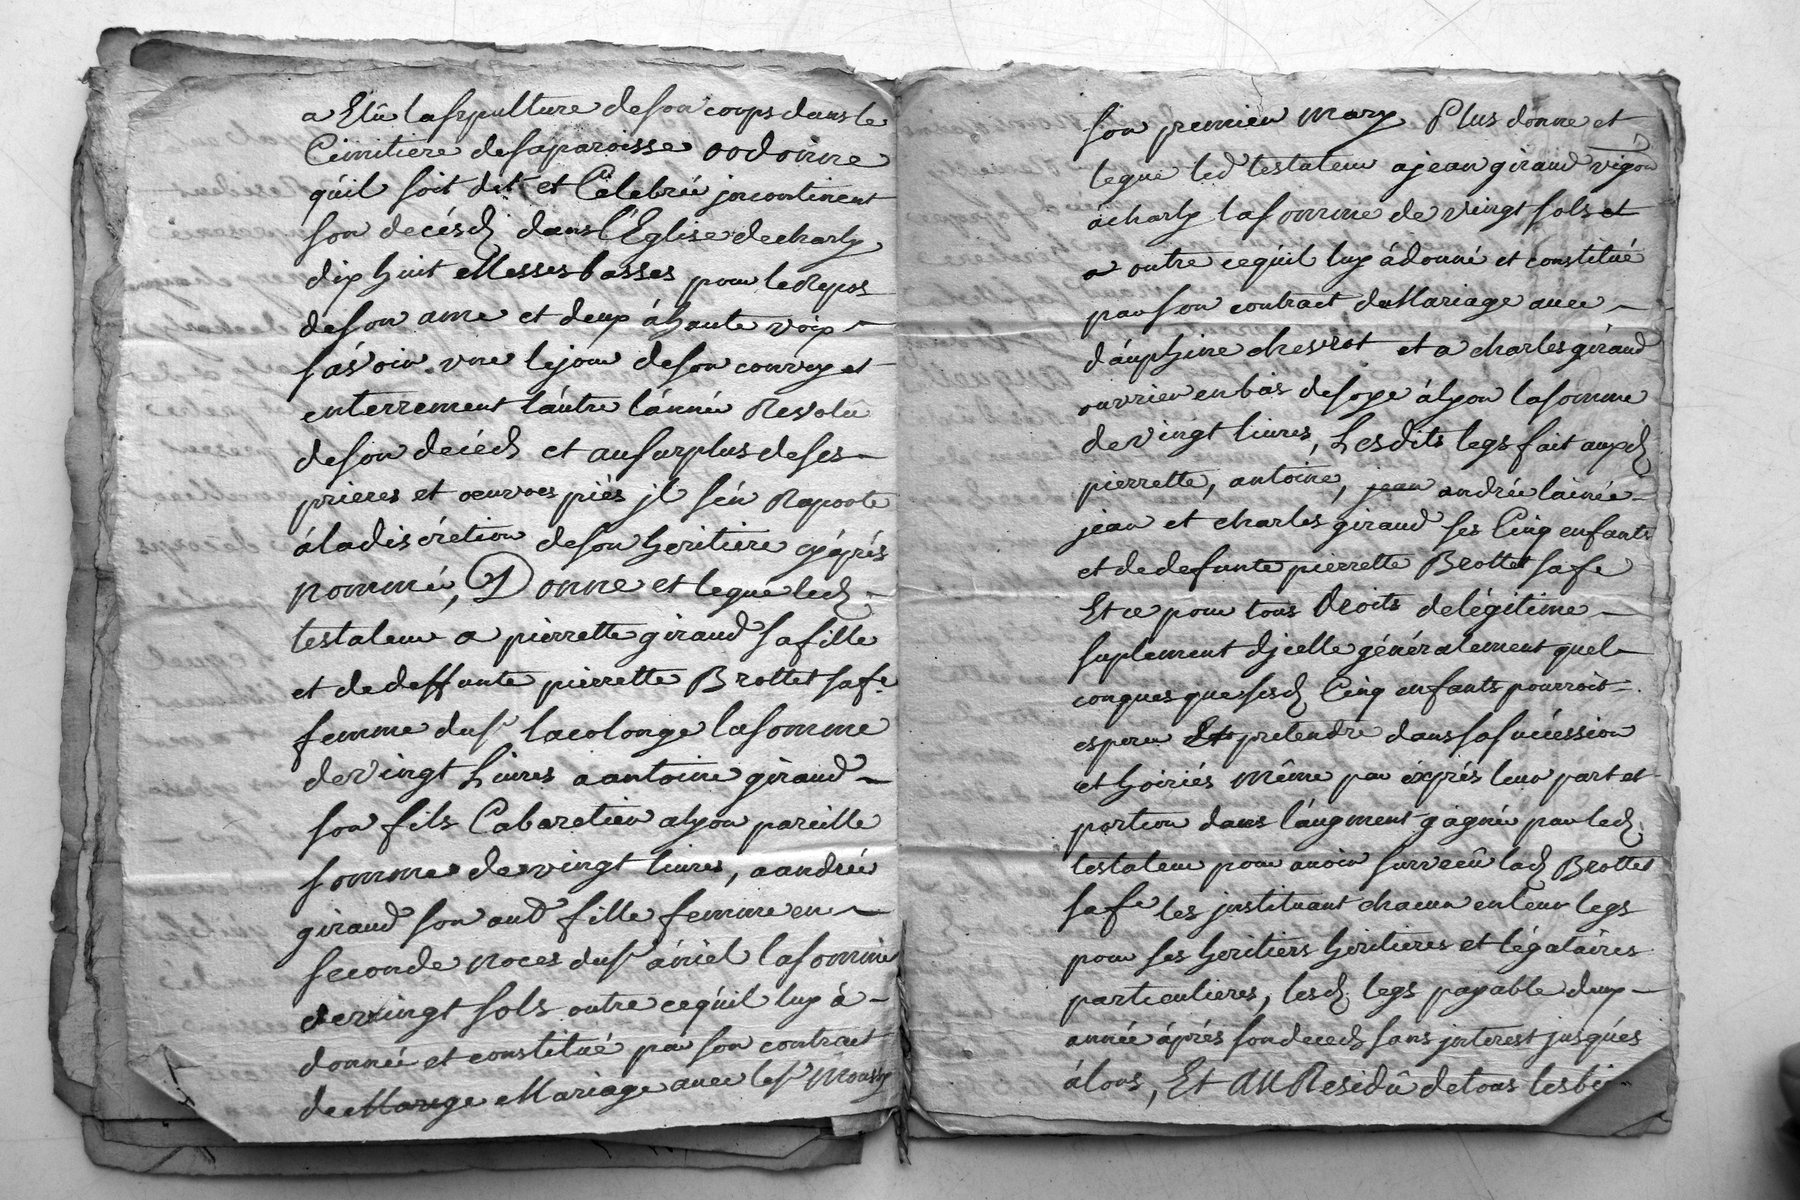 a Elû lasepulture deson corps dans le
Cimitiere desaparoisse oodonne
quil soit dit et Célebrée jncontinent
son decésd dans l'Eglise decharly
dix huit Messes basses pour le Repos
deson ame et deux áhaute voix
sávoir une lejour deson convoy et
enterrement láutre lánnée Revolu
deson decéds et ausurplus deses
prieres et oeuvres piés jl sén Raporte
áladiscrétion deson heritiere cyáprés
nommé, Donne et legue led
testateur a pierrette giraud safille
et dedeffunte pierrette Brottet safe
femme dusr lacolonge lasomme
devingt Livres a antoine giraud
son fils Cabaretier alyon pareille
somme devingt livres, a andrée
giraud son aud fille femme en
seconde noces dusr ániel lasomme
devingt sols outre cequil luy á
donnée et constitué par son contract
de Marige Mariage avec lesr
son premier mary Plus donne et
legue led testateur ajean giraud vigon
ácharly lasomme de vingt sols et
a outre cequil luy ádonné et constitué
par son contract deMariage avec
dáuphine chesrot et a charles giraud
ouvrier en bas desoye ályon lasomme
devingt livres, Lesdits legs fait auxd
pierrette, antoine, jean andrée lainée
jean et charles giraud ses Cinq enfants
et dedefunte pierrette Brottet safe
Et ce pour tous Droits delégitime
suplement djcelle généralement quel
conques que sesd Cinq enfants pourroit
esperer Et pretendre dans sasucéssion
et hoiriés Même par éxprés leur part et
portion dans láugment gágnée par led
testateur pour avoir survecû lad Brottet
safe les jnstituant chacun enleur legs
pour ses heritiers heritieres et légataires
particulieres, lesd legs payable deux
année áprés sondeceds sans jnterest jusqués
álors, Et AU Residû detous lesbi